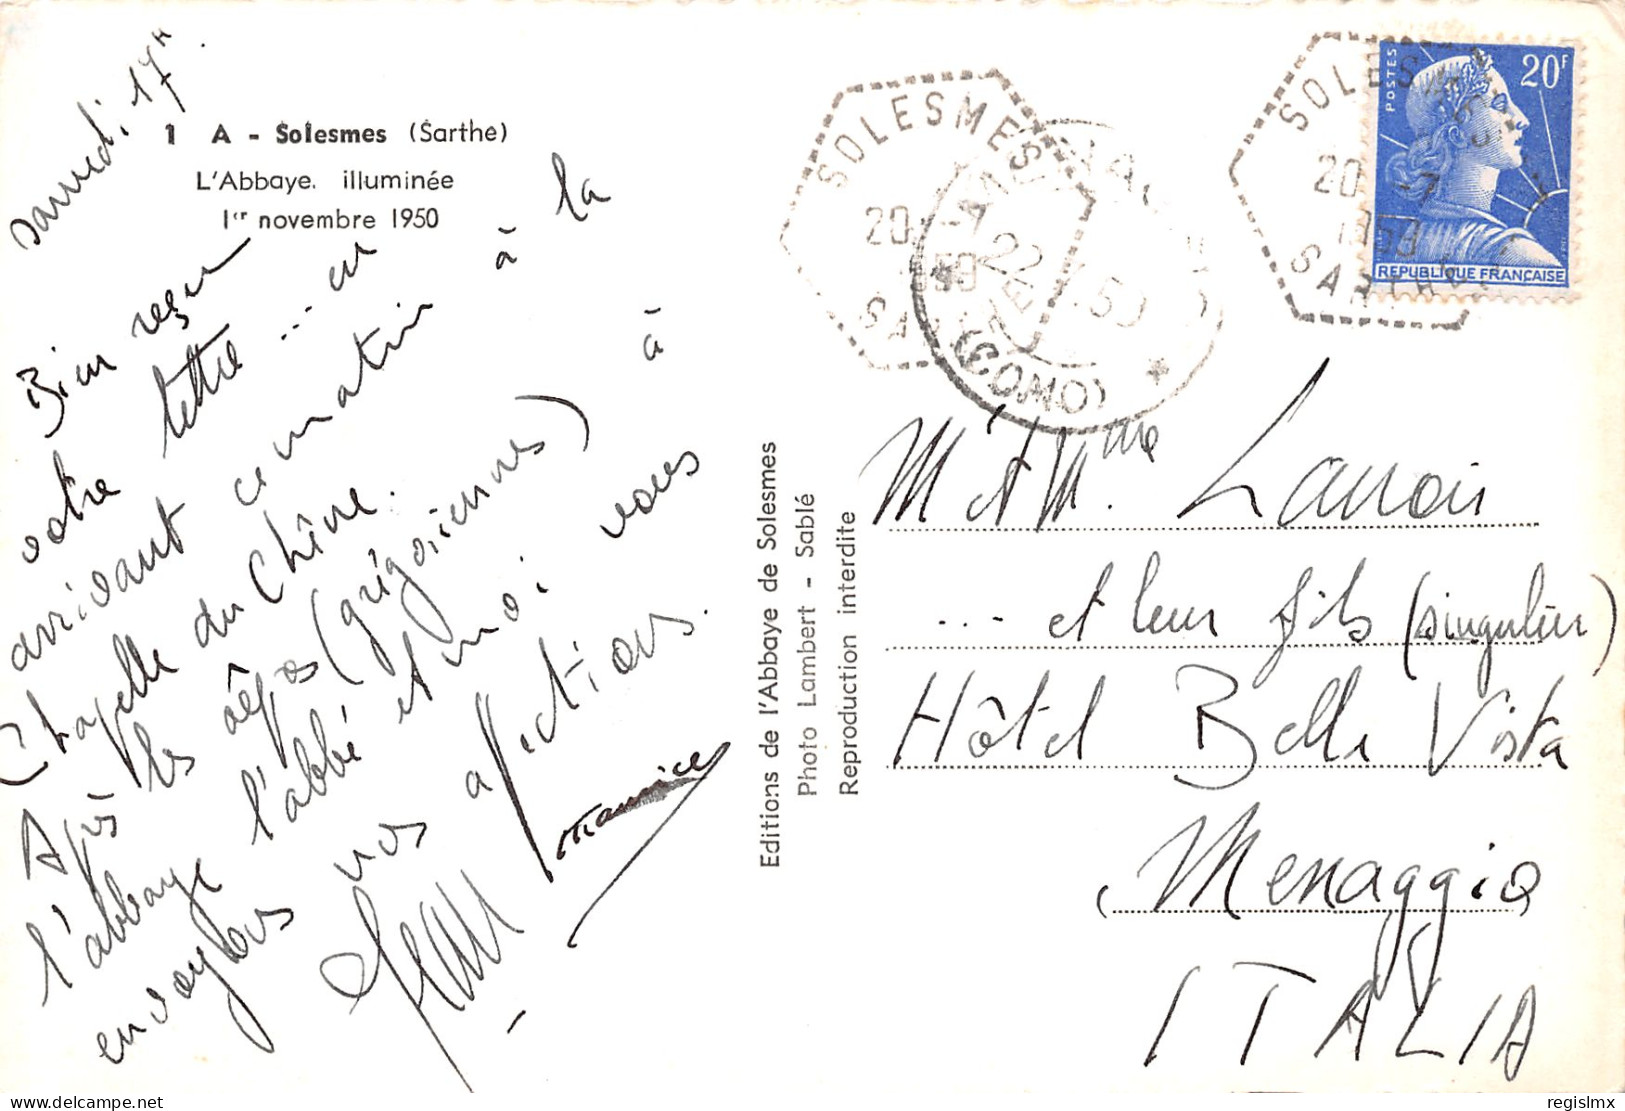 samedi 17 H.
1 A - Solesmes (Sarthe)
L'Abbaye. illuminée
1er novembre 1950
Bien reçu
votre lettre ... en
arrivant ce matin à la
Chapelle du Chêne. à
Après les vêpres (grégoriennes)
l'abbaye l'abbé et moi vous
envoyons nos affections.
Jean
Maurice
Editions de l'Abbaye de Solesmes
Photo Lambert - Sablé
Reproduction interdite
SOLESMES
20
SARTHE
MENAGGIO
22.7.59
(COMO)
SOLESMES
20 -7
1959
SARTHE
POSTES
20F
REPUBLIQUE FRANÇAISE
M et Mme Lanoir
... et leur fils (singulier)
Hôtel Belle Vista
Menaggio
ITALIA
regislmx
delcampe.net